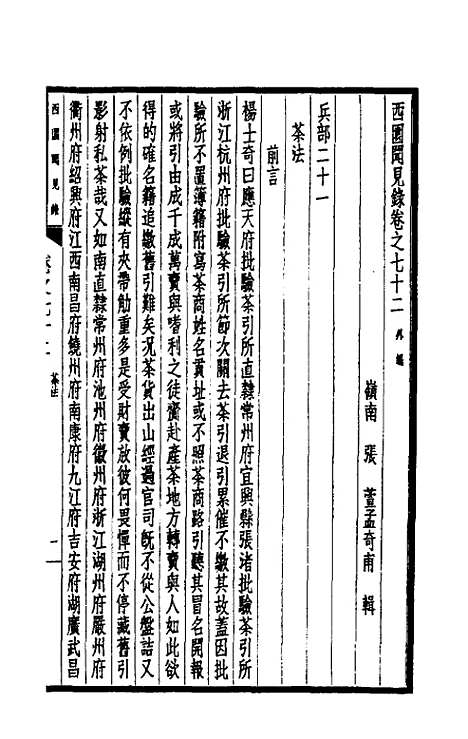 西園聞見錄卷之七十二 外編
嶺南 張 萱孟奇甫 輯
兵部二十一
茶法
前言
楊士奇曰應天府批驗茶引所直隸常州府宜興縣張渚批驗茶引所
浙江杭州府批驗茶引所節次關去茶引退引累催不繳其故蓋因批
驗所不置簿籍附寫茶商姓名貫址或不照茶商路引聽其冒名開報
或將引由成千成萬賣與嗜利之徒齎赴產茶地方轉賣與人如此欲
得的確名籍追繳舊引難矣况茶貨出山經過官司旣不從公盤詰又
不依例批驗縱有夾帶觔重多是受財賣放彼何畏憚而不停藏舊引
影射私茶哉又如南直隸常州府池州府徽州府浙江湖州府嚴州府
衢州府紹興府江西南昌府饒州府南康府九江府吉安府湖廣武昌
西園聞見錄
卷之七十二 茶法
一